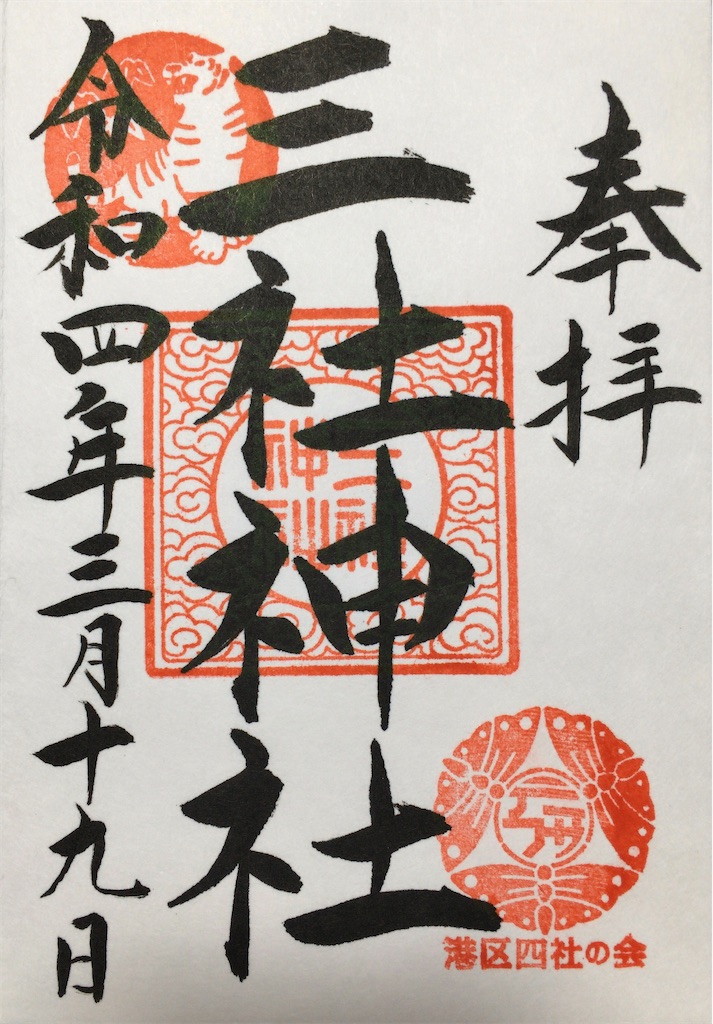 奉拝
三社神社
令和四年三月十九日
三社
神社
港区四社の会